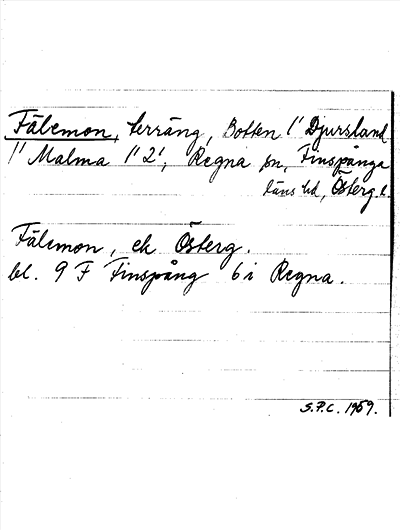 Fälemon, terräng, Botten 1/1 Djursland
1/1 Malma 1/1 2/1, Regna sn, Finspånga
läns hd, Österg. l.
Fälemon, ek Österg.
bl. 9 F Finspång 6 i Regna.
S.P.C. 1959.